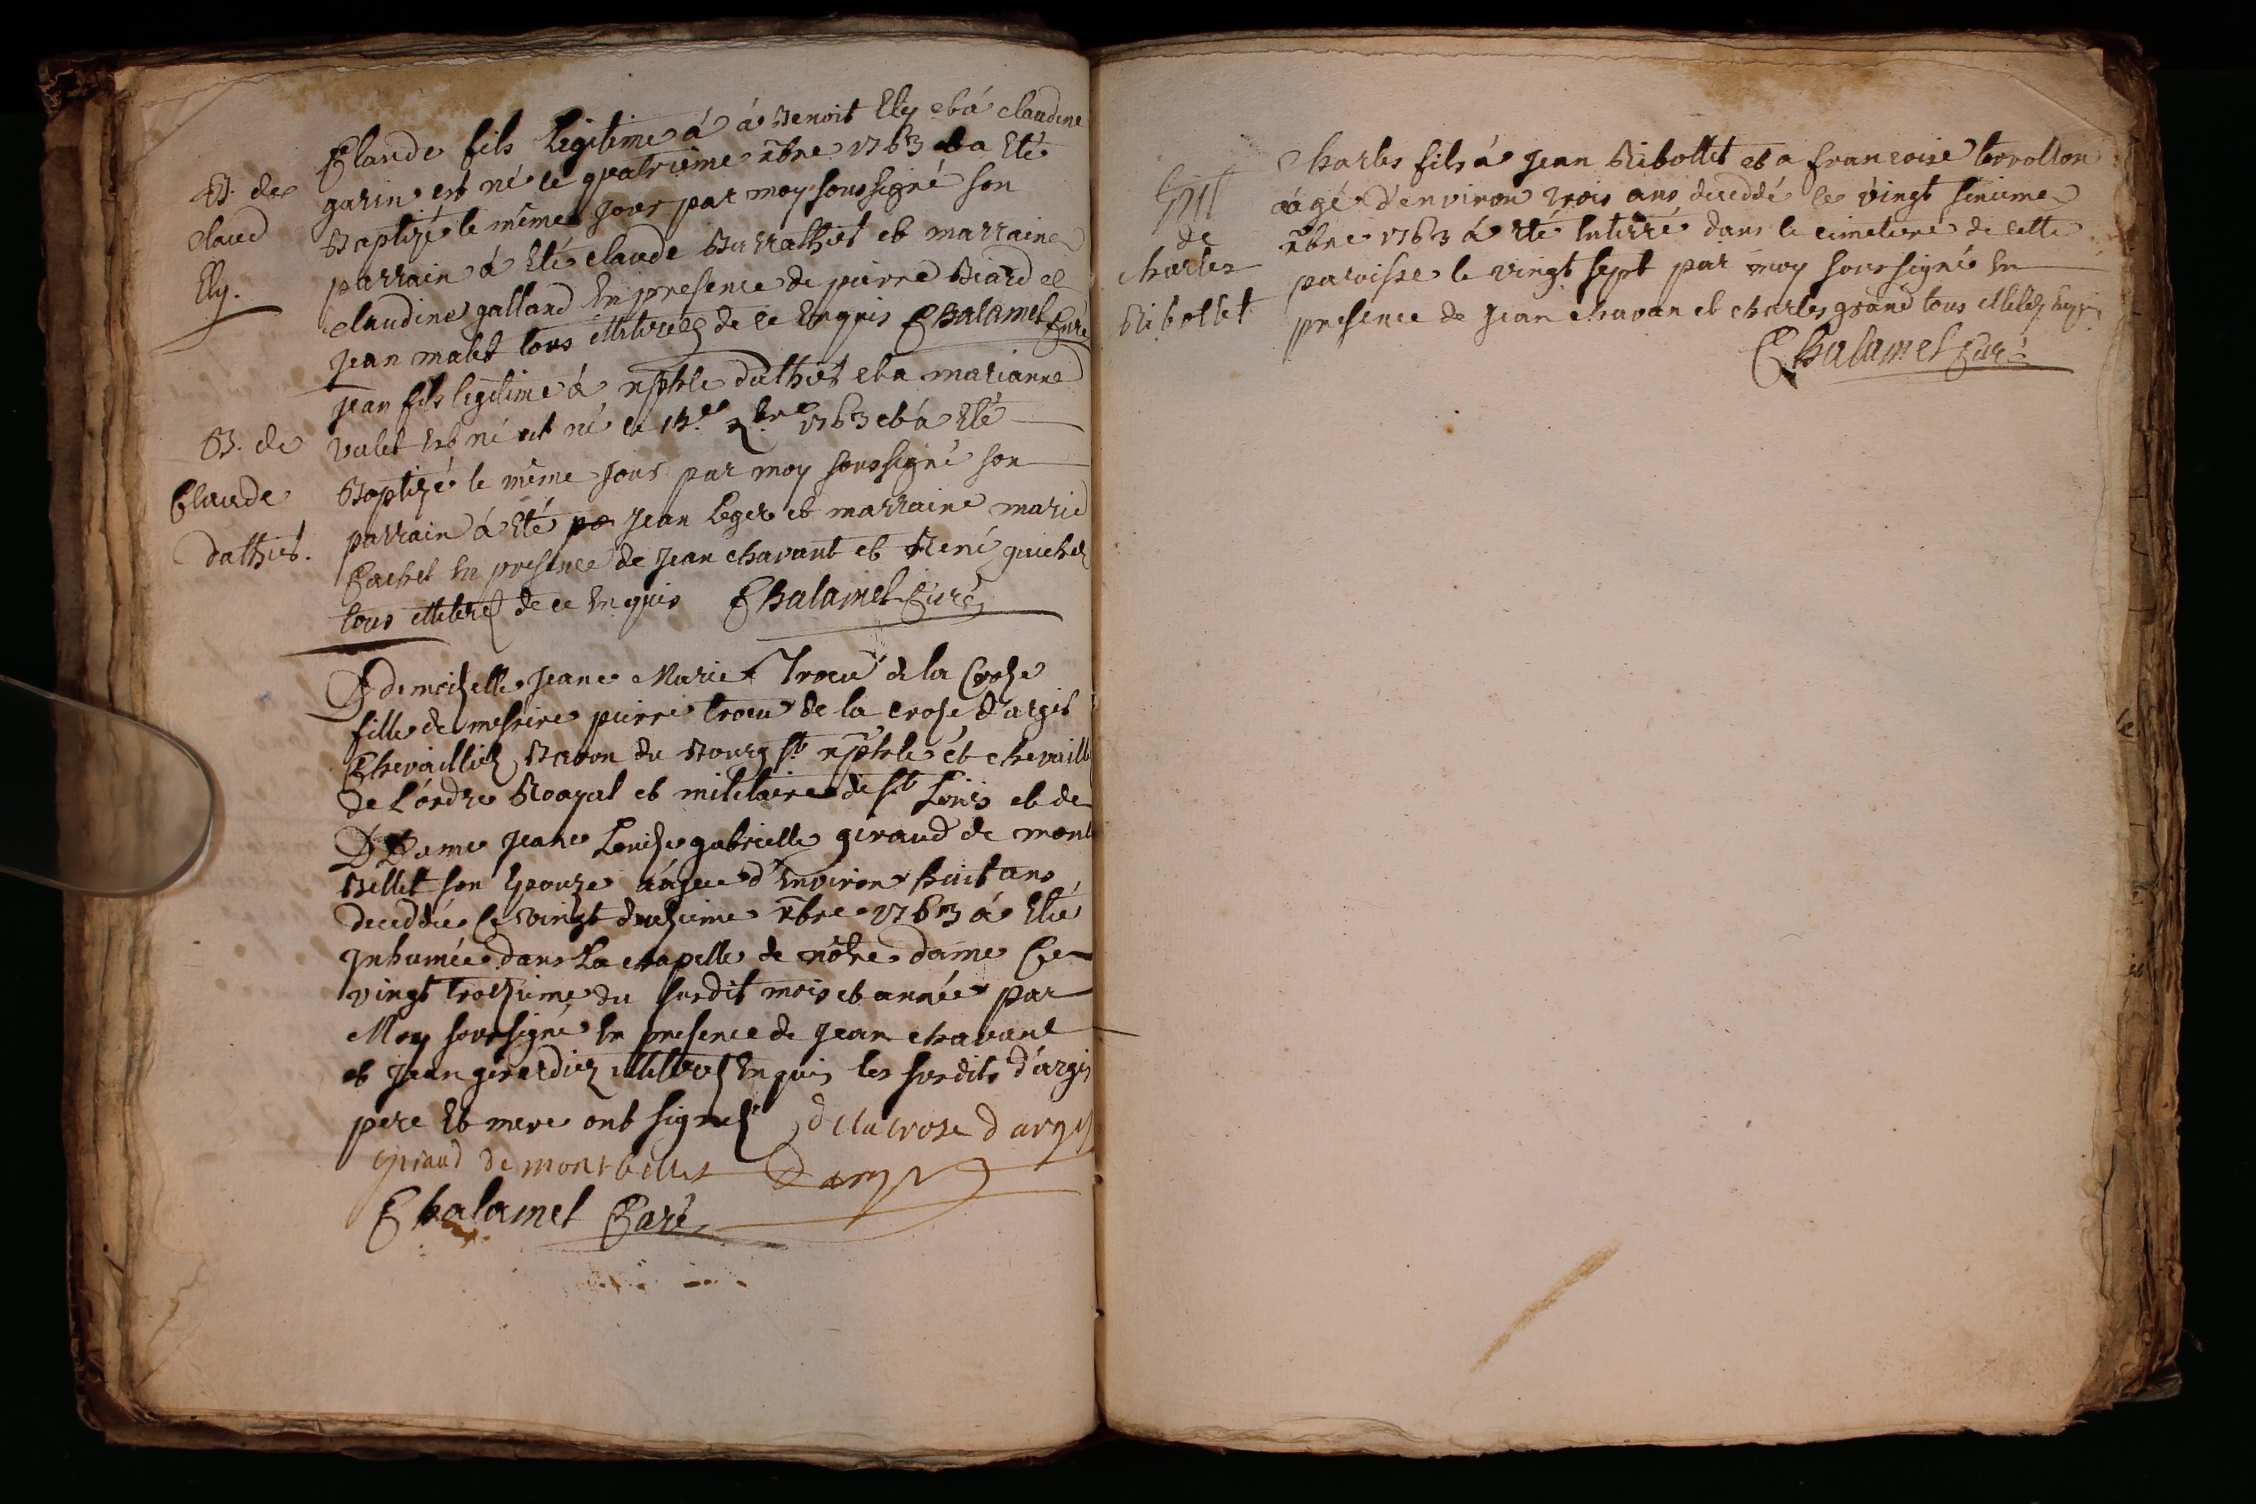 B. de
claud
Ely.
Claude fils Legitime á á Benoit Ely et á claudine
garin est né le quatrieme xbre 1763 et a Eté
Baptizé le même jour par moy soussigné son
parrain á Eté claude Barrathiet et marraine
claudine galland En presence de pierre Biard et
jean malet tous illiterez de ce Enquis Chalamel Curé
B. de
Claude
dathiet.
jean fils legitime á xphle dathiet et a marianne
valet est né et né le 15.e xbre 1763 et á Eté
Baptizé le même jour par moy soussigné son
parrain á Eté jean Leger et marraine marie
Cachet En presence de jean chavant et René guichez
tous illiterez de ce Enquis Chalamel Curé
Demoizelle jeane Marie Trocu de la Croze
fille de messire pierre trocu de la croze d'argit
Chevaillier Baron du Bourg St xphle et chevaill
de L'ordre Roayal et militaire de St Loüis et de
Dame jeane Louize gabrielle giraud de mont
Bellet son Epouze áágée d'Environ huit ans
deceddée Le vingt deuzieme xbre 1763 á Eté
Inhumée dans La chapelle de nôtre dame Ce
vingt troizieme du susdit mois et année par
Moy soussigné En presence de jean chavant
et jean girerdier illiterez Enquis les susdits d'argis
pere Et mere ont signez delacroze dargit
giraud de montbellet Dargit
Chalamel Curé
de
charles
Ribollet
Charles fils á jean Ribollet et a francoise terrollon
áágé d'environ trois ans deceddé le vingt sixieme
xbre 1763 á eté Enterré dans le cimetiere de cette
paroisse le vingt sept par moy soussigné En
presence de jean chavan et charles grand tous illiterez
Chalamel Curé